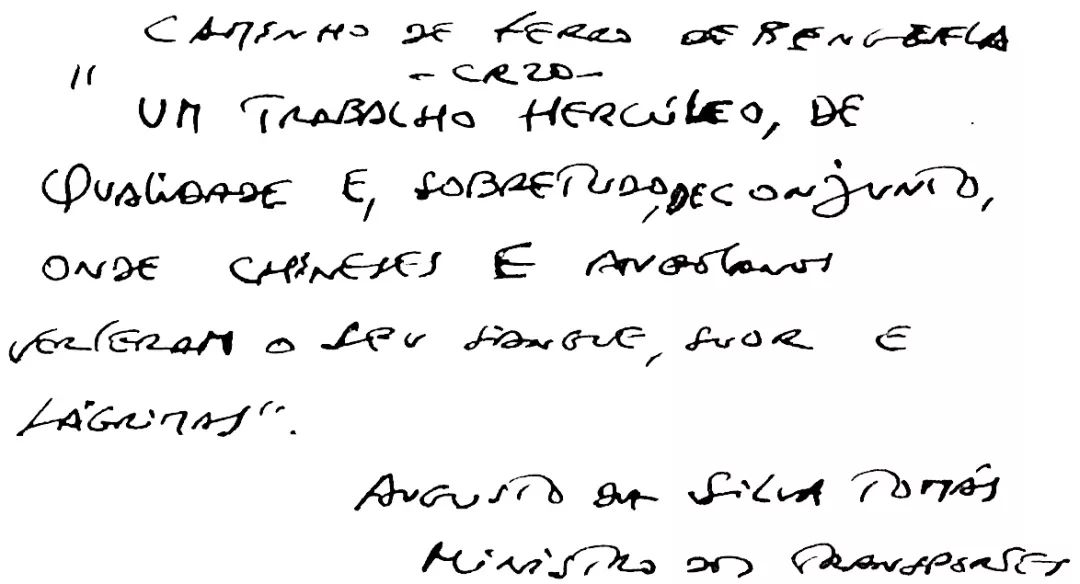 CAMINHO DE FERRO DE BENGUELA
- CR20 -
" UM TRABALHO HERCÚLEO, DE
QUALIDADE E, SOBRETUDO, DE CONJUNTO,
ONDE CHINESES E ANGOLANOS
VERTERAM O SEU SANGUE, SUOR E
LÁGRIMAS".
AUGUSTO DA SILVA TOMÁS
MINISTRO DOS TRANSPORTES